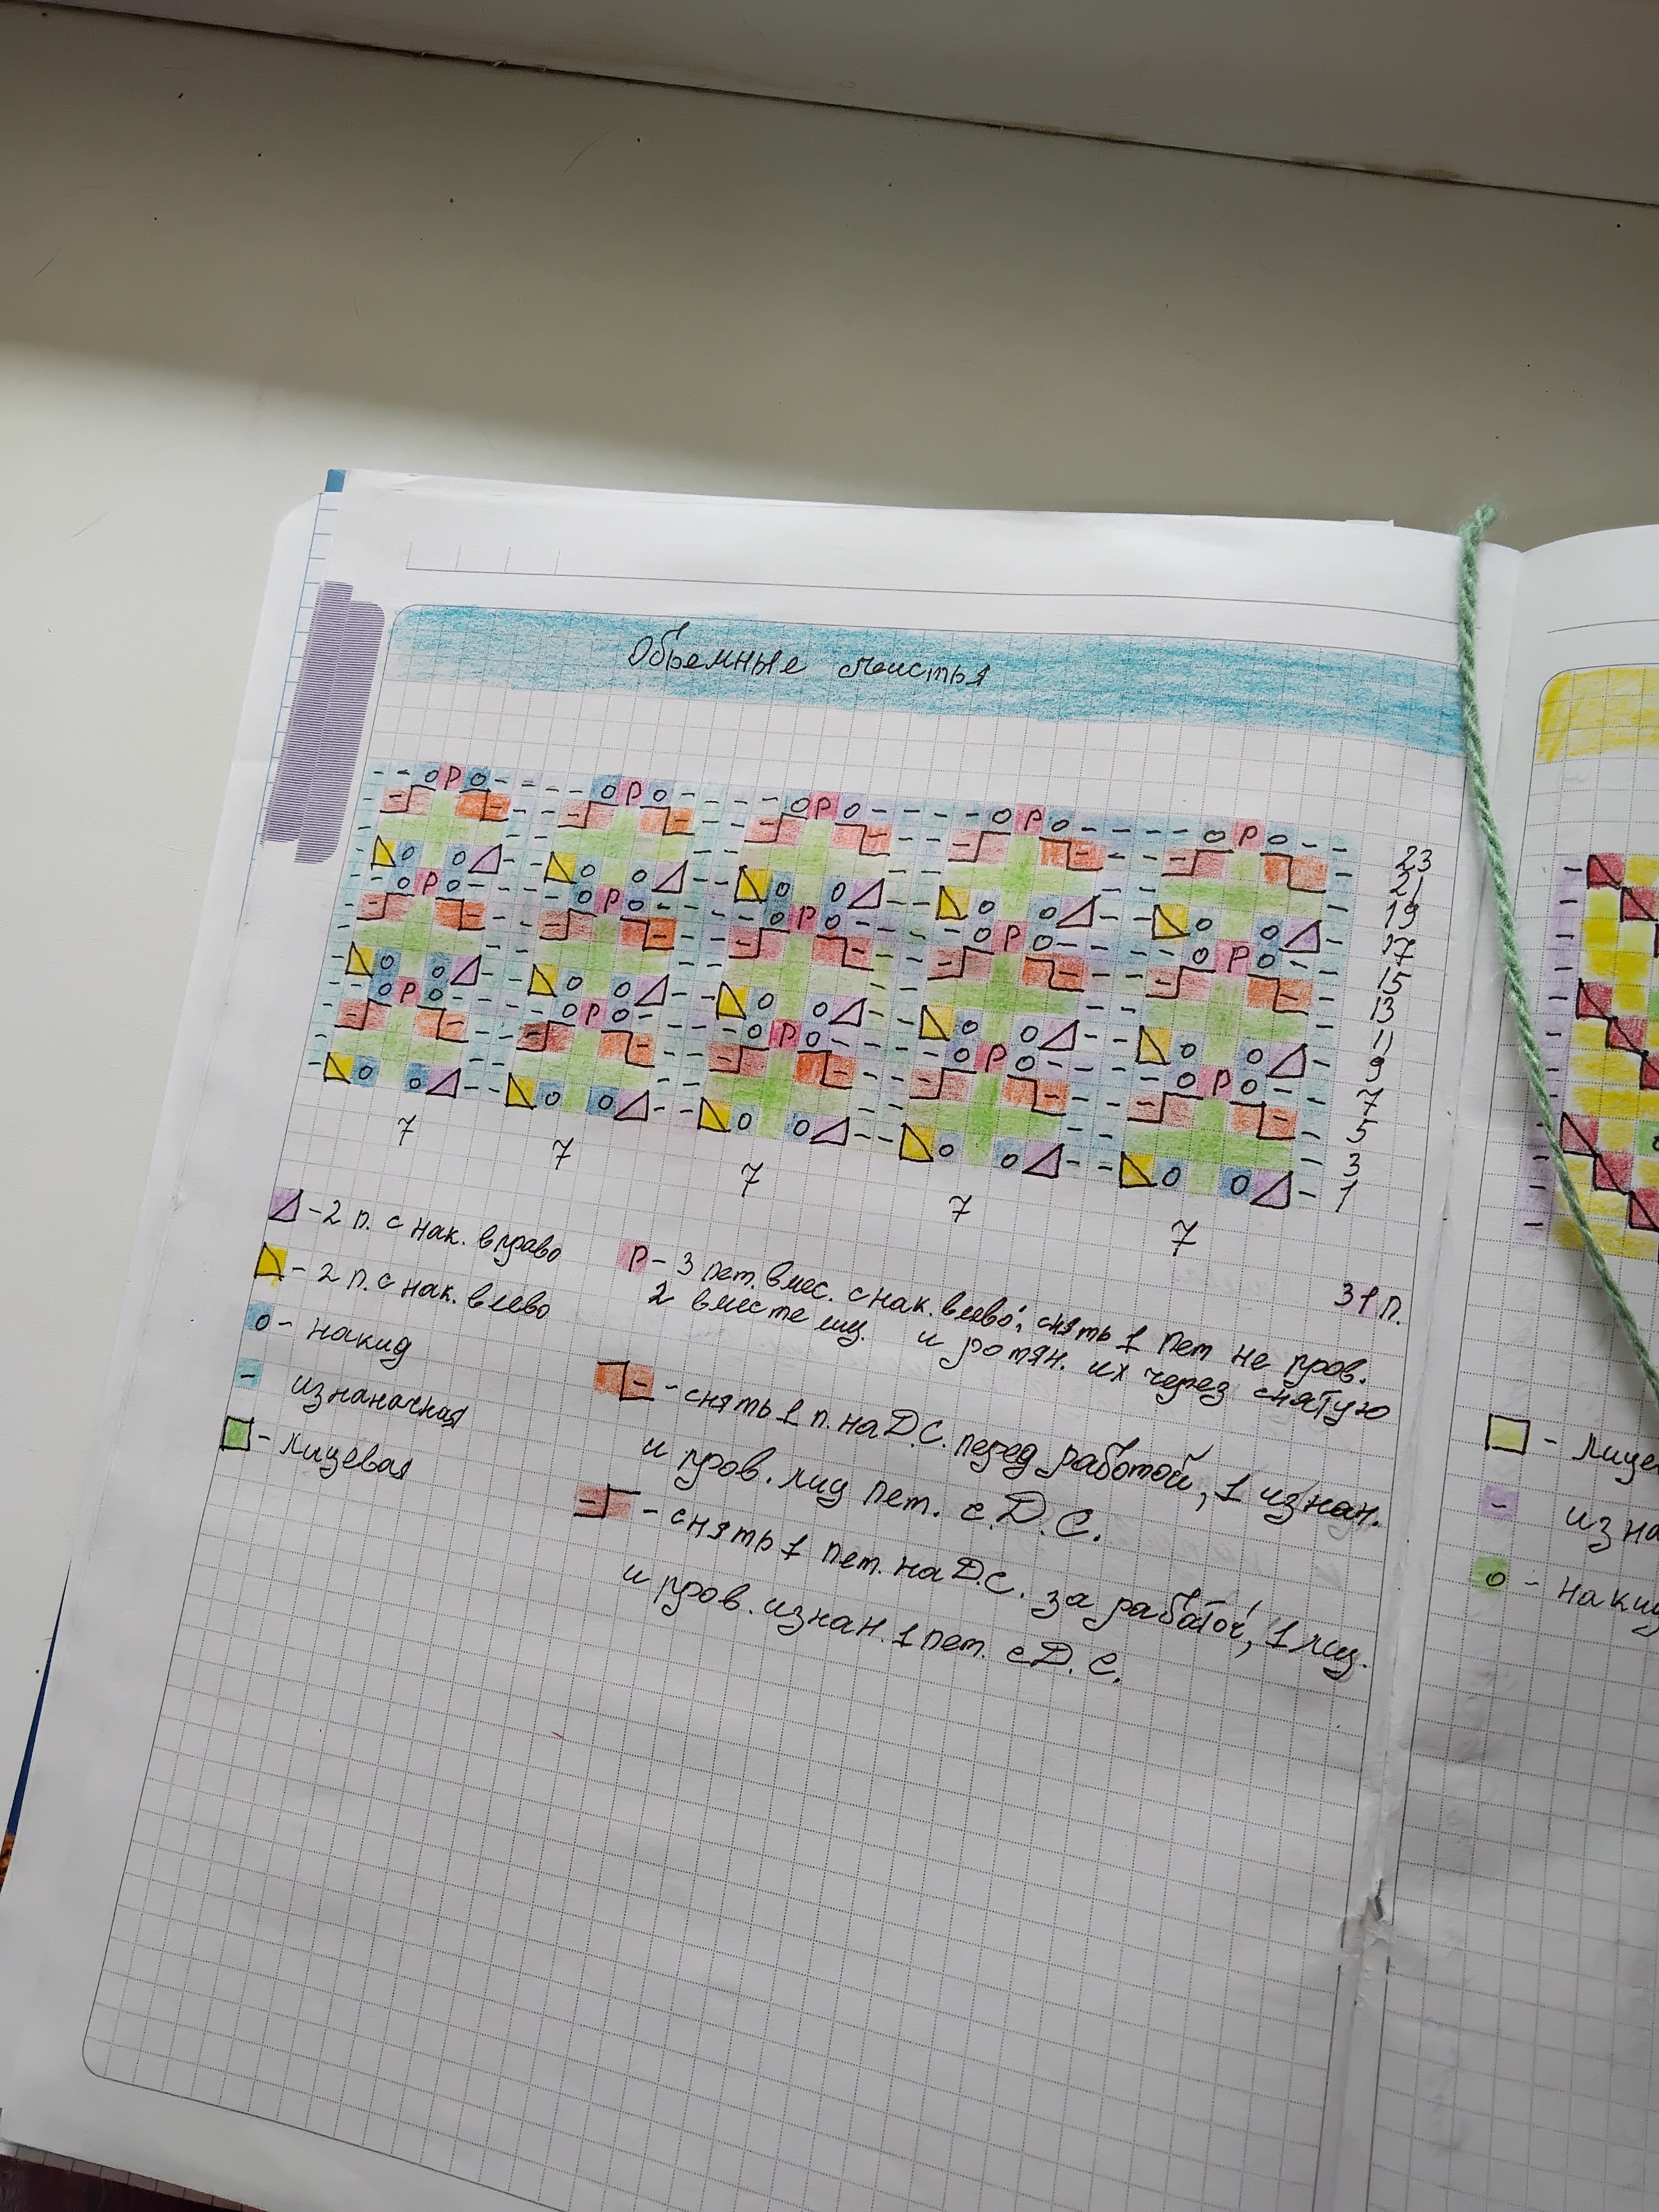 Объемные листья
23
21
19
17
15
13
11
9
7
5
3
1
7 7 7 7 7
31 п.
- 2 п. с нак. вправо
- 2 п. с нак. влево
о - накид
- изнаночная
- лицевая
Р - 3 пет. вмес. с нак. влево: снять 1 пет не пров.
2 вместе лиц. и ротян. их через снятую
- снять 1 п. на Д.С. перед работой, 1 изнан.
и пров. лиц пет. с Д.С.
- снять 1 пет. на Д.С. за работой, 1 лиц.
и пров. изнан. 1 пет. с Д.С.
- лице
- изна
о - наки